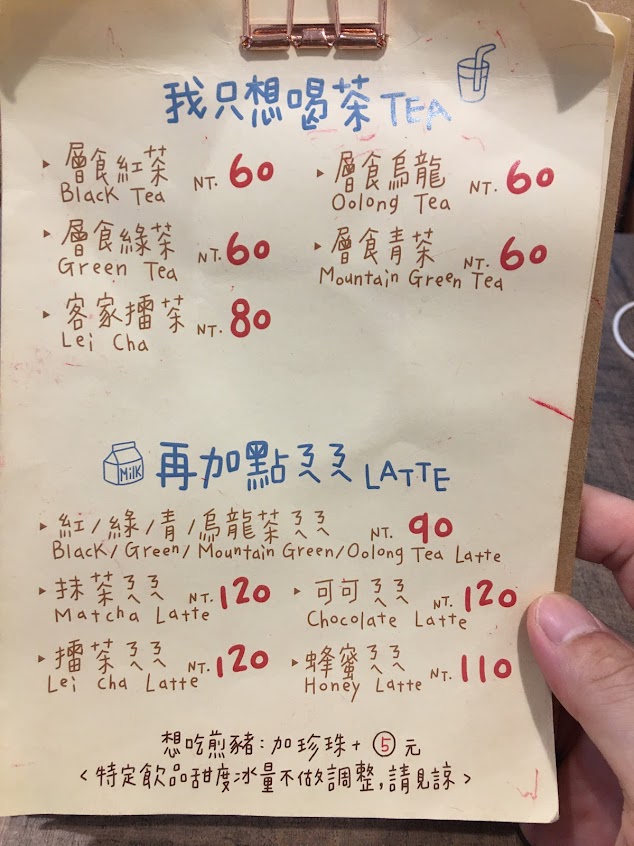 我只想喝茶 TEA
▸ 層食紅茶 NT. 60
Black Tea
▸ 層食烏龍 NT. 60
Oolong Tea
▸ 層食綠茶 NT. 60
Green Tea
▸ 層食青茶 NT. 60
Mountain Green Tea
▸ 客家擂茶 NT. 80
Lei Cha
MilK
再加點ㄋㄋ LATTE
▸ 紅/綠/青/烏龍茶ㄋㄋ NT. 90
Black/Green/Mountain Green/Oolong Tea Latte
▸ 抹茶ㄋㄋ NT. 120
Matcha Latte
▸ 可可ㄋㄋ NT. 120
Chocolate Latte
▸ 擂茶ㄋㄋ NT. 120
Lei cha Latte
▸ 蜂蜜ㄋㄋ NT. 110
Honey Latte
想吃煎豬:加珍珠+⑤元
<特定飲品甜度冰量不做調整,請見諒>